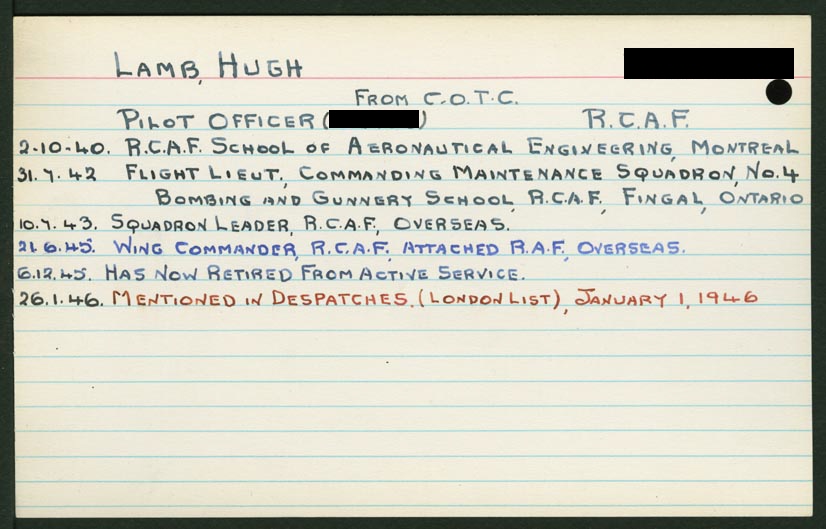 LAMB, HUGH
FROM C.O.T.C.
PILOT OFFICER ( ) R.C.A.F.
2.10.40. R.C.A.F. SCHOOL OF AERONAUTICAL ENGINEERING, MONTREAL
31.7.42 FLIGHT LIEUT., COMMANDING MAINTENANCE SQUADRON, NO.4
BOMBING AND GUNNERY SCHOOL, R.C.A.F., FINGAL, ONTARIO
10.7.43. SQUADRON LEADER, R.C.A.F., OVERSEAS.
21.6.45. WING COMMANDER, R.C.A.F. ATTACHED R.A.F., OVERSEAS.
6.12.45. HAS NOW RETIRED FROM ACTIVE SERVICE.
26.1.46. MENTIONED IN DESPATCHES. (LONDON LIST), JANUARY 1, 1946